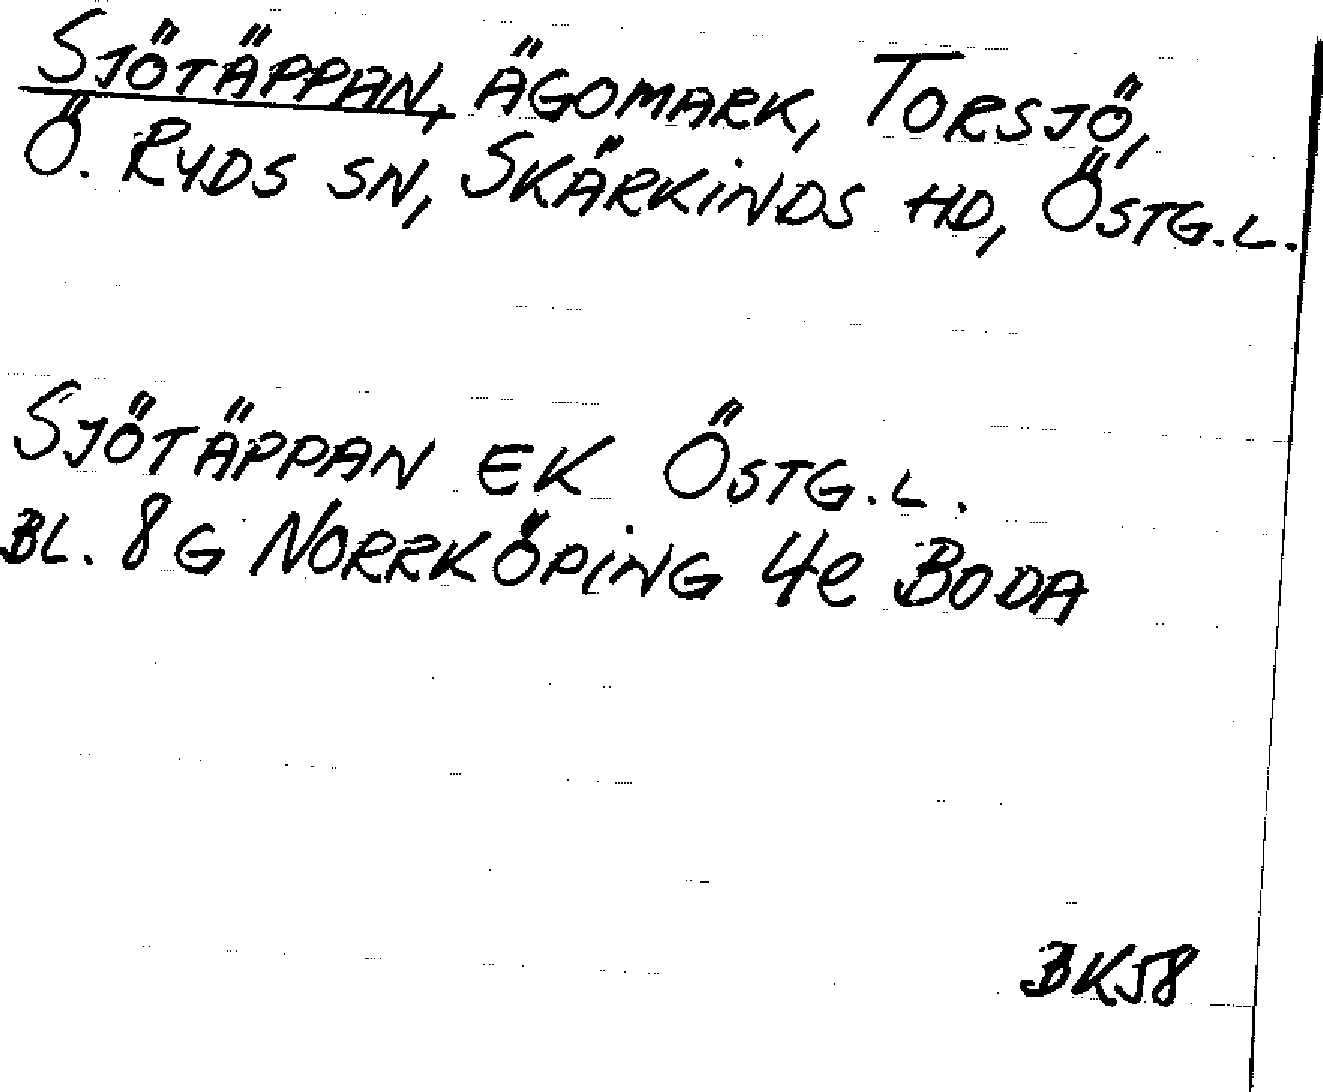 SJÖTÄPPAN, ÄGOMARK, TORSJÖ,
Ö. RYDS SN, SKÄRKINDS HD, ÖSTG.L.
SJÖTÄPPAN EK ÖSTG.L.
BL. 8G NORRKÖPING 4e BODA
BK58